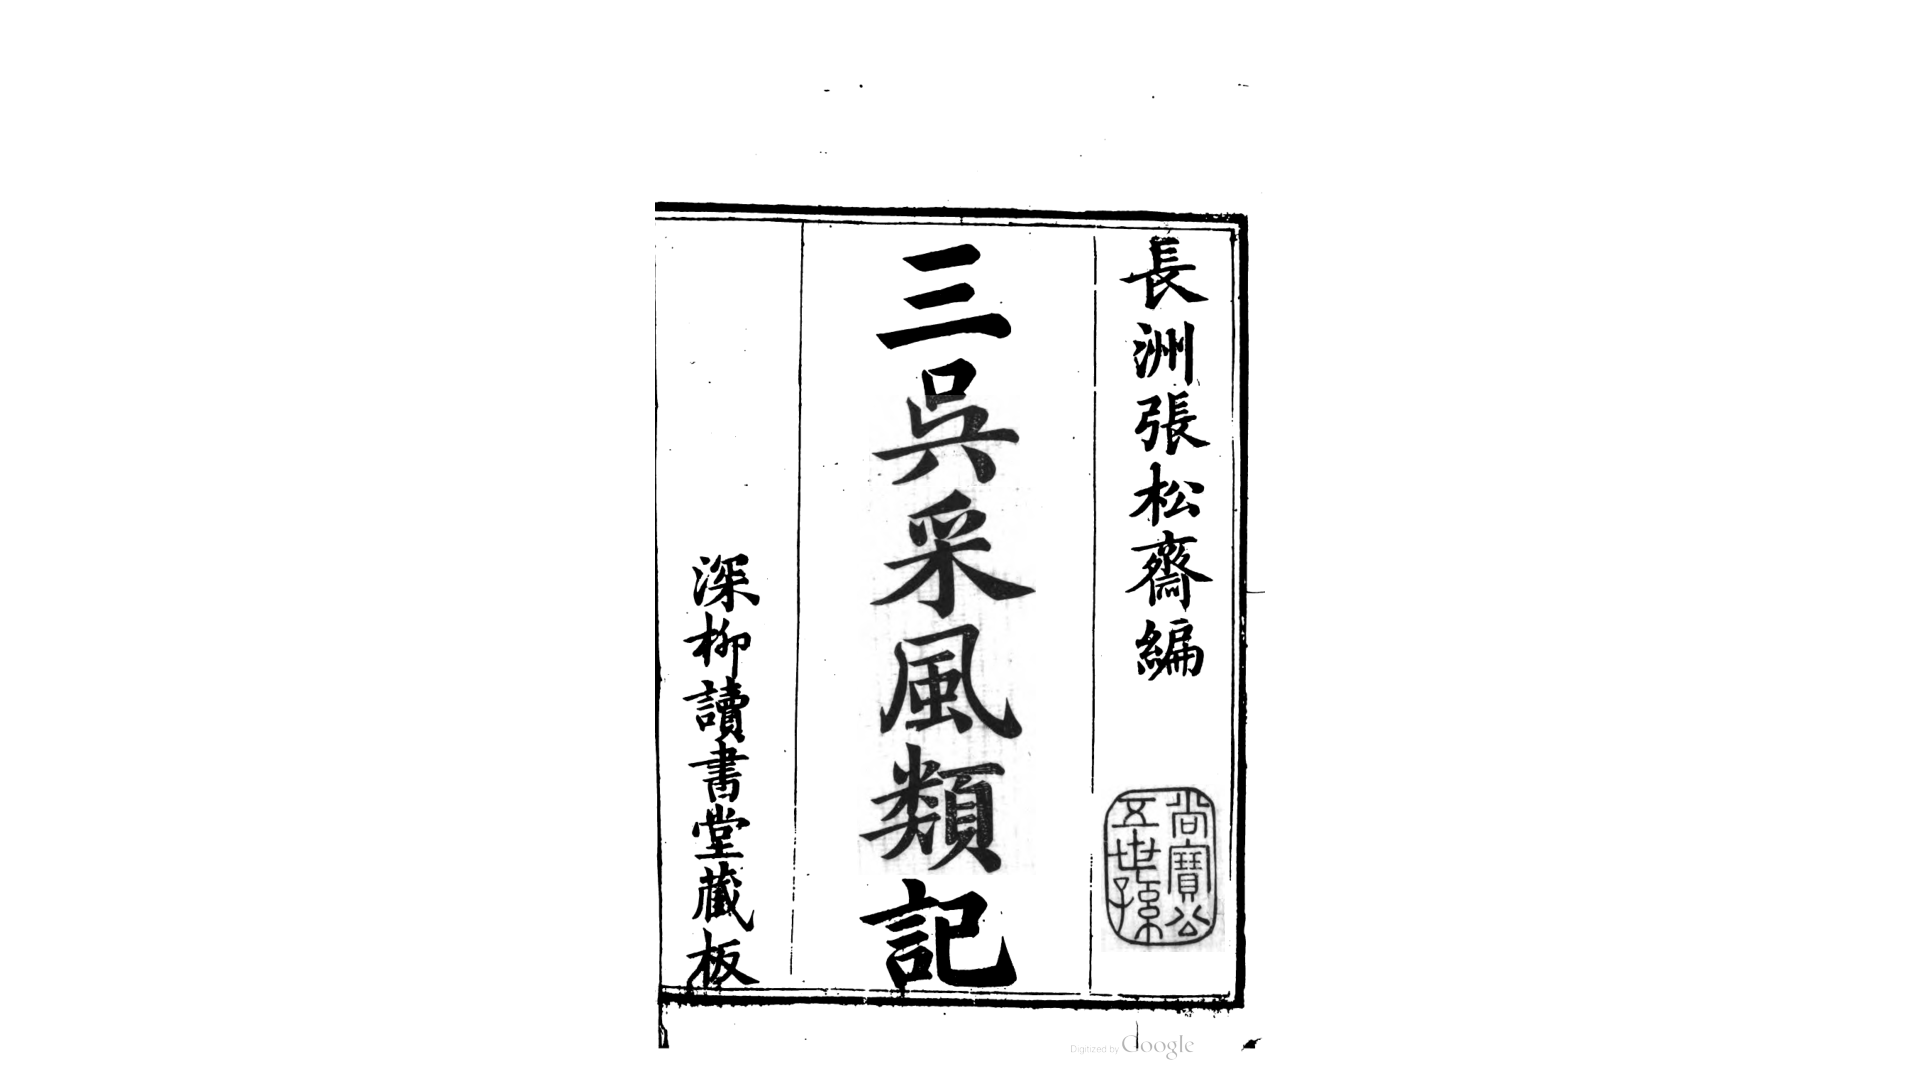 長洲張松齋編
尚寶公
五世孫
三吳采風類記
深柳讀書堂藏板
Digitized by Google